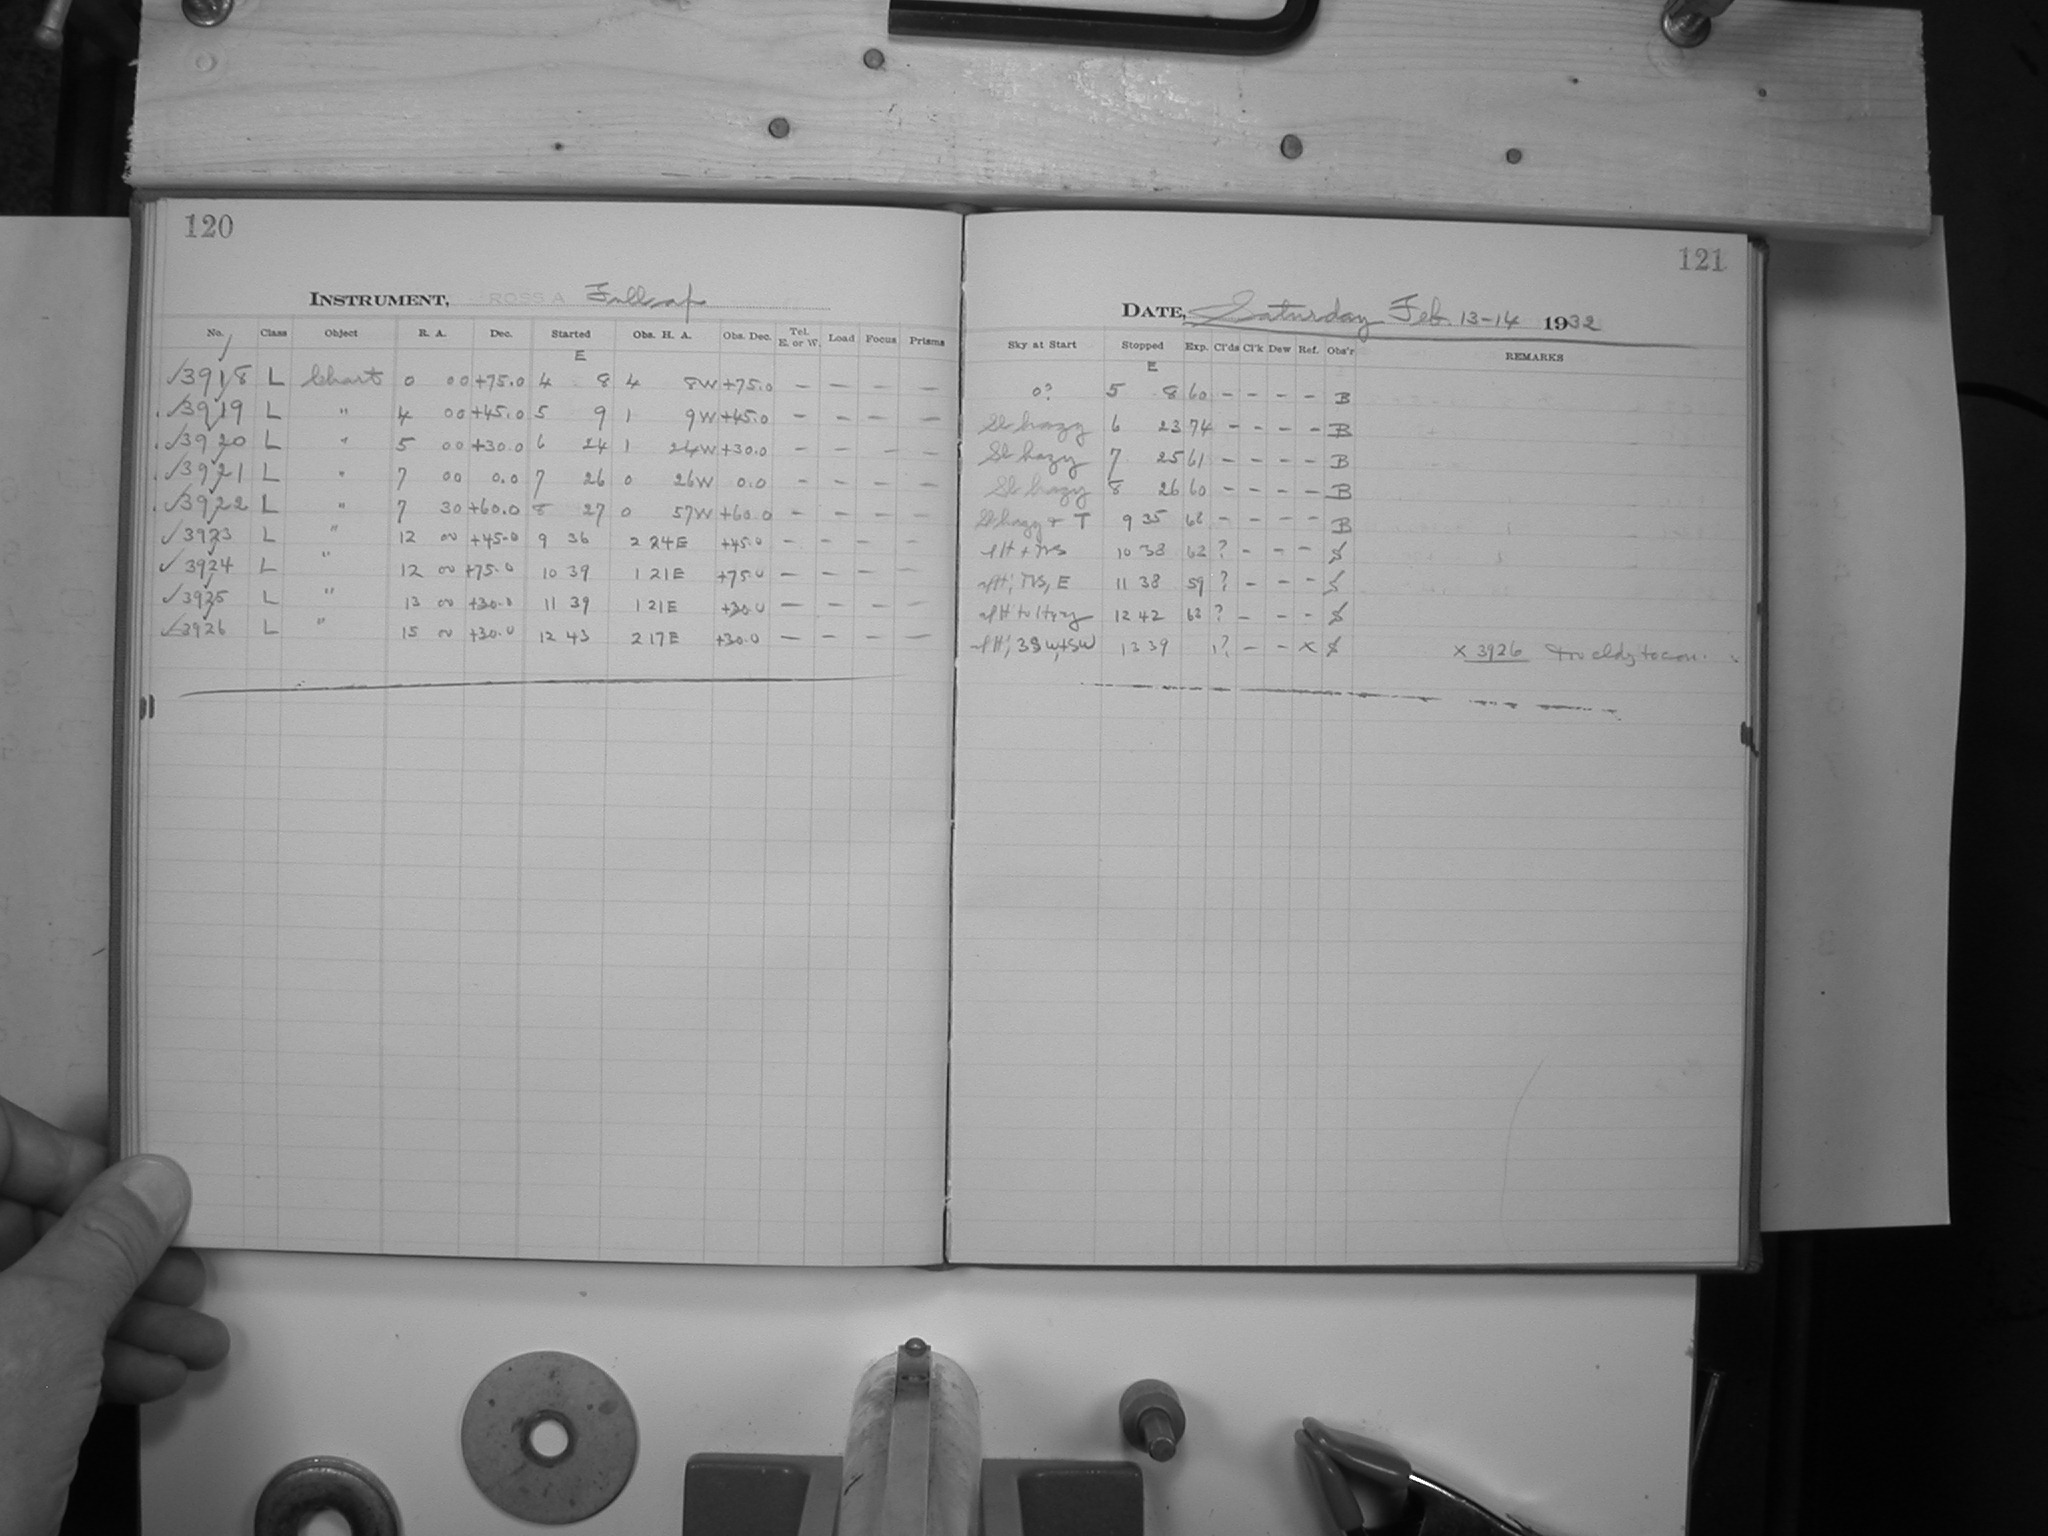 120
INSTRUMENT, ROSS A Full ap
No. Class Object R. A. Dec. Started Obs. H. A. Obs. Dec. Tel. E. or W. Load Focus Prisms
E
✓3918 L Chart 0 00 +75.0 4 8 4 8W +75.0 — — — —
✓3919 L " 4 00 +45.0 5 9 1 9W +45.0 — — — —
✓3920 L " 5 00 +30.0 6 24 1 24W +30.0 — — — —
✓3921 L " 7 00 0.0 7 26 0 26W 0.0 — — — —
✓3922 L " 7 30 +60.0 8 27 0 57W +60.0 — — — —
✓3923 L " 12 00 +45.0 9 36 2 24E +45.0 — — — —
✓3924 L " 12 00 +75.0 10 39 1 21E +75.0 — — — —
✓3925 L " 13 00 +30.0 11 39 1 21E +30.0 — — — —
✓3926 L " 15 00 +30.0 12 43 2 17E +30.0 — — — —
121
DATE, Saturday Feb. 13-14 1932
Sky at Start Stopped Exp. Cl'ds Cl'k Dew Ref. Obs'r REMARKS
E
0? 5 8 60 – – – – B
Sl hazy 6 23 74 – – – – B
Sl hazy 7 25 61 – – – – B
Sl hazy 8 26 60 – – – – B
Sl hazy + T 9 35 68 – – – – B
10 38 62 ? – – –
E 11 38 59 ? – – –
to Hazy 12 42 63 ? – – –
3SW,+SW 13 39 1? – – X
X 3926 cldy to con.